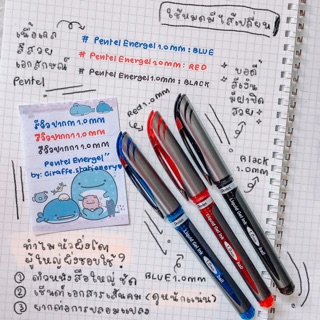 ใช้หมดมีไส้เปลี่ยน
เนื้อเจล
สีสวย
เอกลักษณ์
Pentel
# Pentel Energel 1.0mm : BLUE
# Pentel Energel 1.0mm : RED
# Pentel Energel 1.0mm : BLACK
บอดี้
สีเงิน
มีฝาปิด
สวย
Red 1.0mm
Black
1.0mm
สีริ้วปากกา 1.0mm
สีริ้วปากกา 1.0mm
สีริ้วปากกา 1.0mm
Pentel Energel"
by: Giraffe.stationery
Liquid Gel Ink
Liquid Gel Ink
Liquid Gel Ink
ทำไมหัวยิ่งโต
ผู้ใหญ่ยิ่งชอบใช้?
① ตัวหนังสือใหญ่ ชัด
BLUE 1.0mm
② เซ็นต์เอกสารเส้นคม (ดูหนักแน่น)
③ ยากต่อการปลอมแปลง